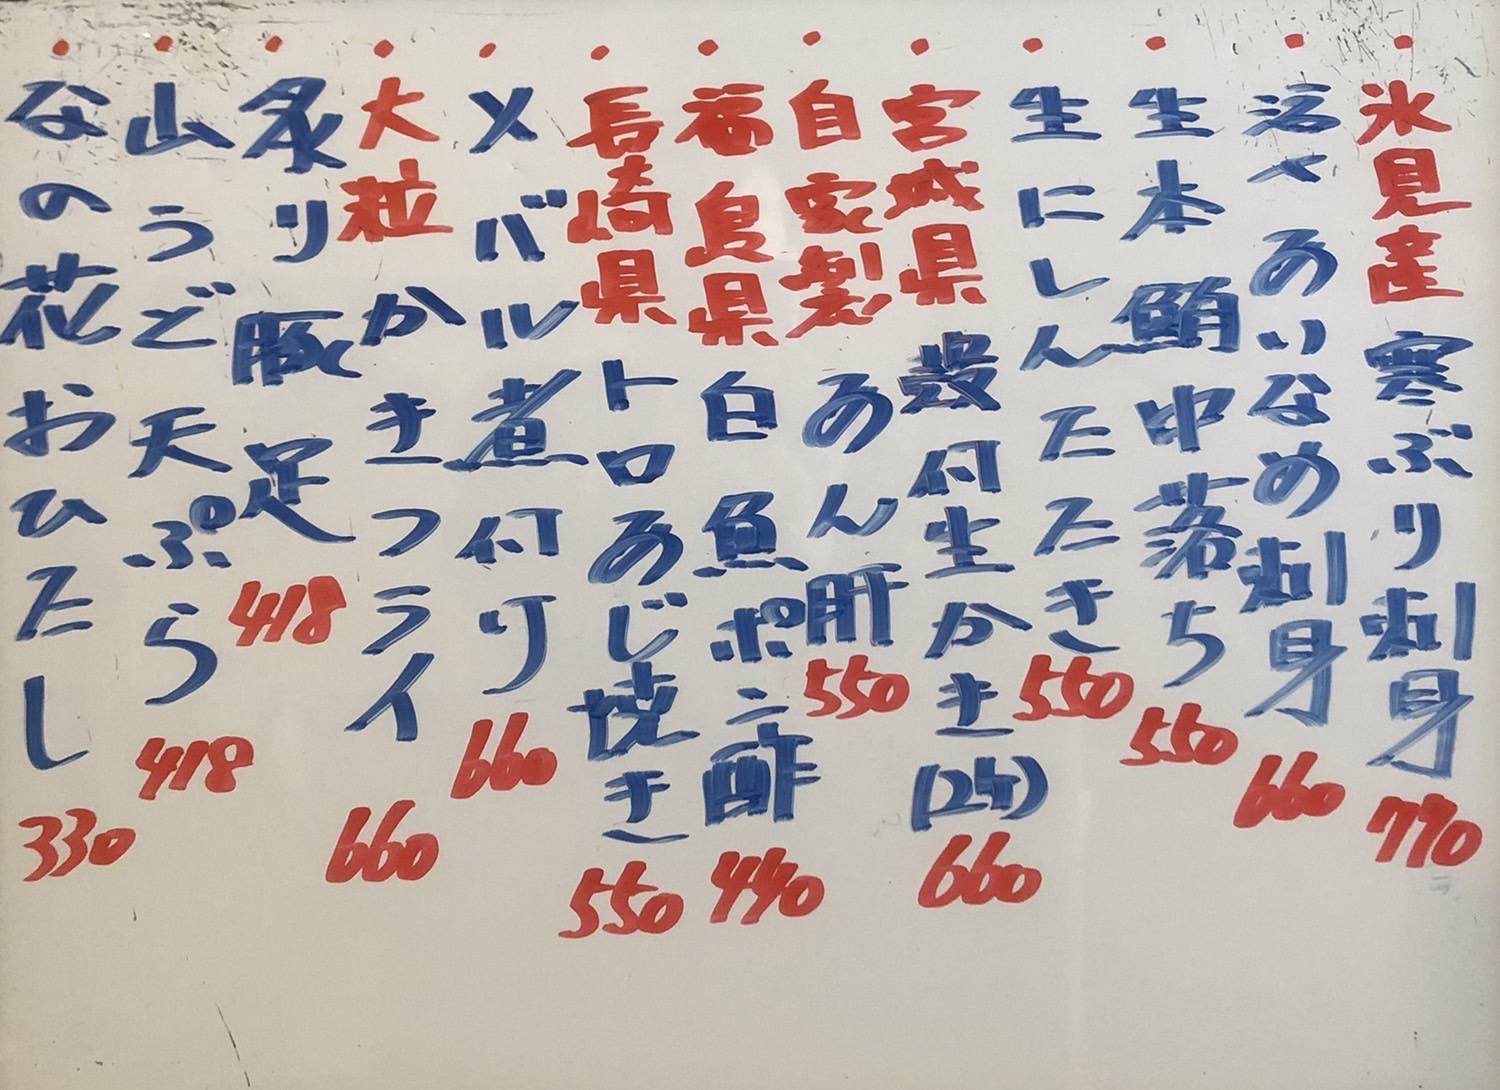 ・氷見産寒ぶり刺身 770
・活〆あいなめ刺身 660
・生本鮪中落ち 550
・生にしんたたき 550
・宮城県殻付生かき(2ケ) 660
・自家製あん肝 550
・福島県白魚ポン酢 440
・長崎県トロあじ焼き 550
・メバル煮付け 660
・大粒かきフライ 660
・炙り豚足 418
・山うど天ぷら 418
・なの花おひたし 330